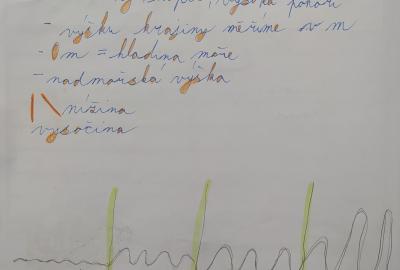 vysoká pohoří
- výšku krajiny měříme v m
- 0 m = hladina moře
- nadmořská výška
nížina
vysočina